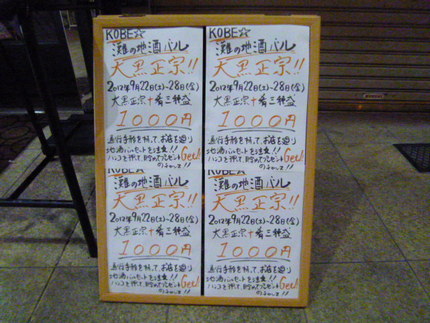 KOBE☆
灘の地酒バル
大黒正宗!!
2012年9月22日(土)~28日(金)
大黒正宗+肴三種盛
1000円
通行手形を持ってお店を巡り
地酒バルセットを注文!!
ハンコを押して貯めてプレゼントGet!
KOBE☆
灘の地酒バル
大黒正宗!!
2012年9月22日(土)~28日(金)
大黒正宗+肴三種盛
1000円
通行手形を持ってお店を巡り
地酒バルセットを注文!!
ハンコを押して貯めてプレゼントGet!
KOBE☆
灘の地酒バル
大黒正宗!!
2012年9月22日(土)~28日(金)
大黒正宗+肴三種盛
1000円
通行手形を持ってお店を巡り
地酒バルセットを注文!!
ハンコを押して貯めてプレゼントGet!
KOBE☆
灘の地酒バル
大黒正宗!!
2012年9月22日(土)~28日(金)
大黒正宗+肴三種盛
1000円
通行手形を持ってお店を巡り
地酒バルセットを注文!!
ハンコを押して貯めてプレゼントGet!